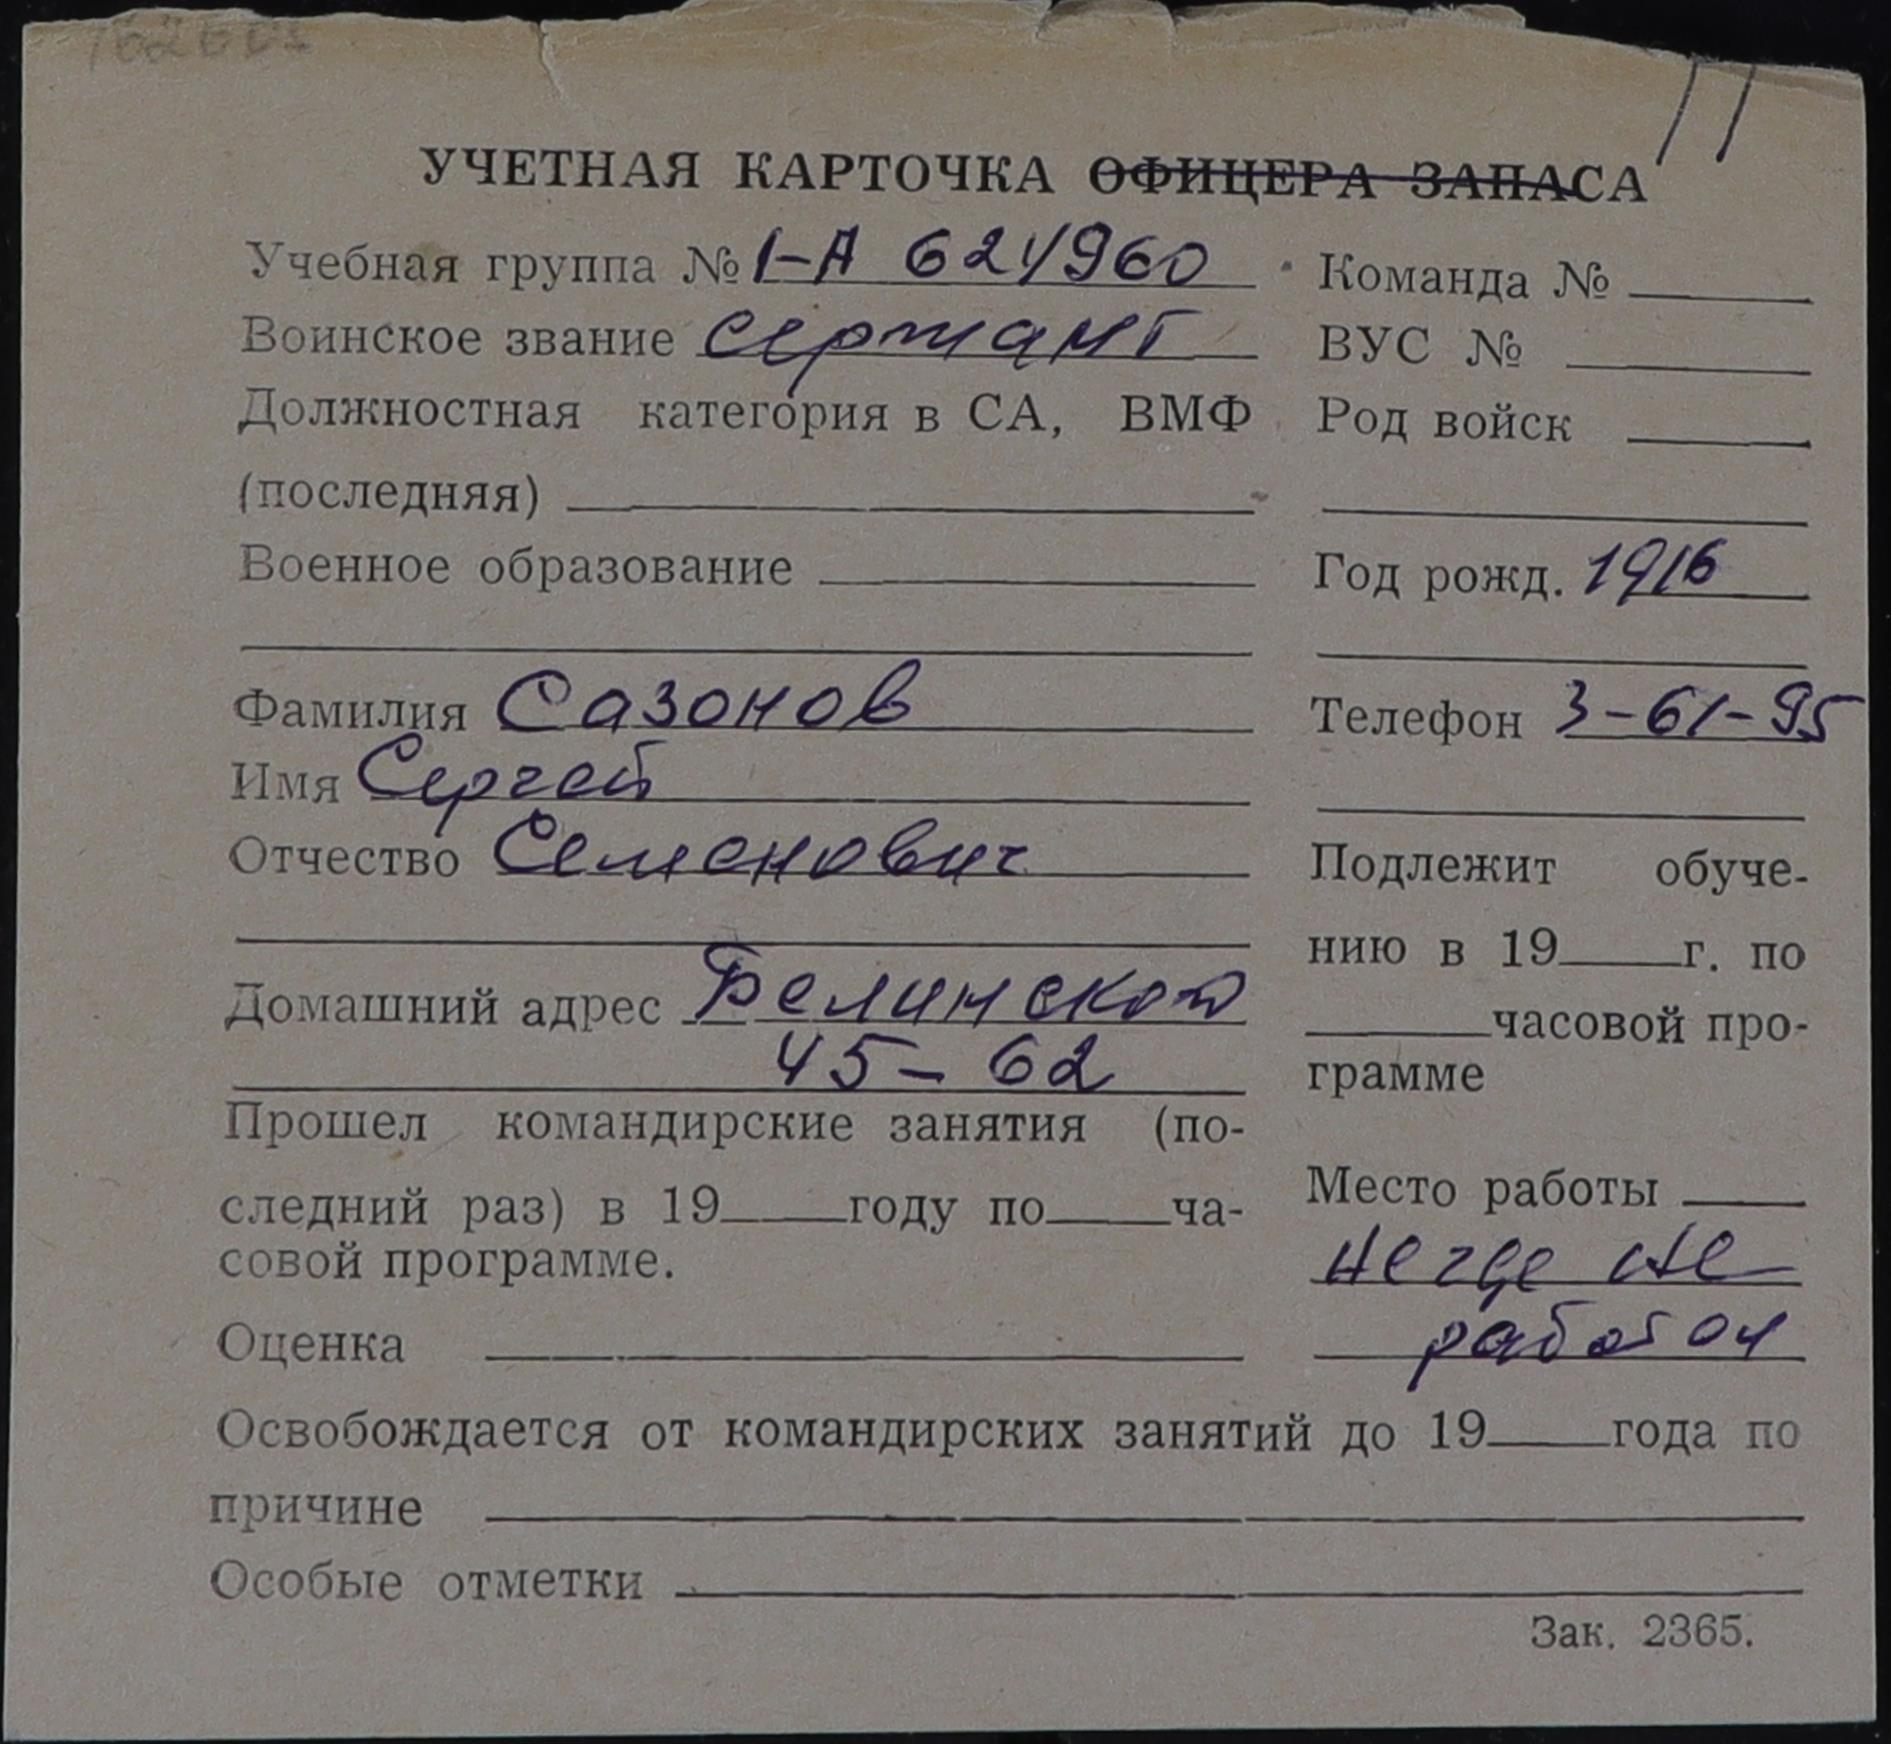 УЧЕТНАЯ КАРТОЧКА ОФИЦЕРА ЗАПАСА
Учебная группа № 1-А 621960
Воинское звание сержант
Должностная категория в СА, ВМФ
(последняя)
Военное образование
Фамилия Сазонов
Имя Сергей
Отчество Семенович
Домашний адрес Белинского
45-62
Прошел командирские занятия (по-
следний раз) в 19____году по____ча-
совой программе.
Оценка
Команда №
ВУС №
Род войск
Год рожд. 1916
Телефон 3-61-95
Подлежит обуче-
нию в 19____г. по
____часовой про-
грамме
Место работы
не где не
работал
Освобождается от командирских занятий до 19____года по
причине
Особые отметки
Зак. 2365.